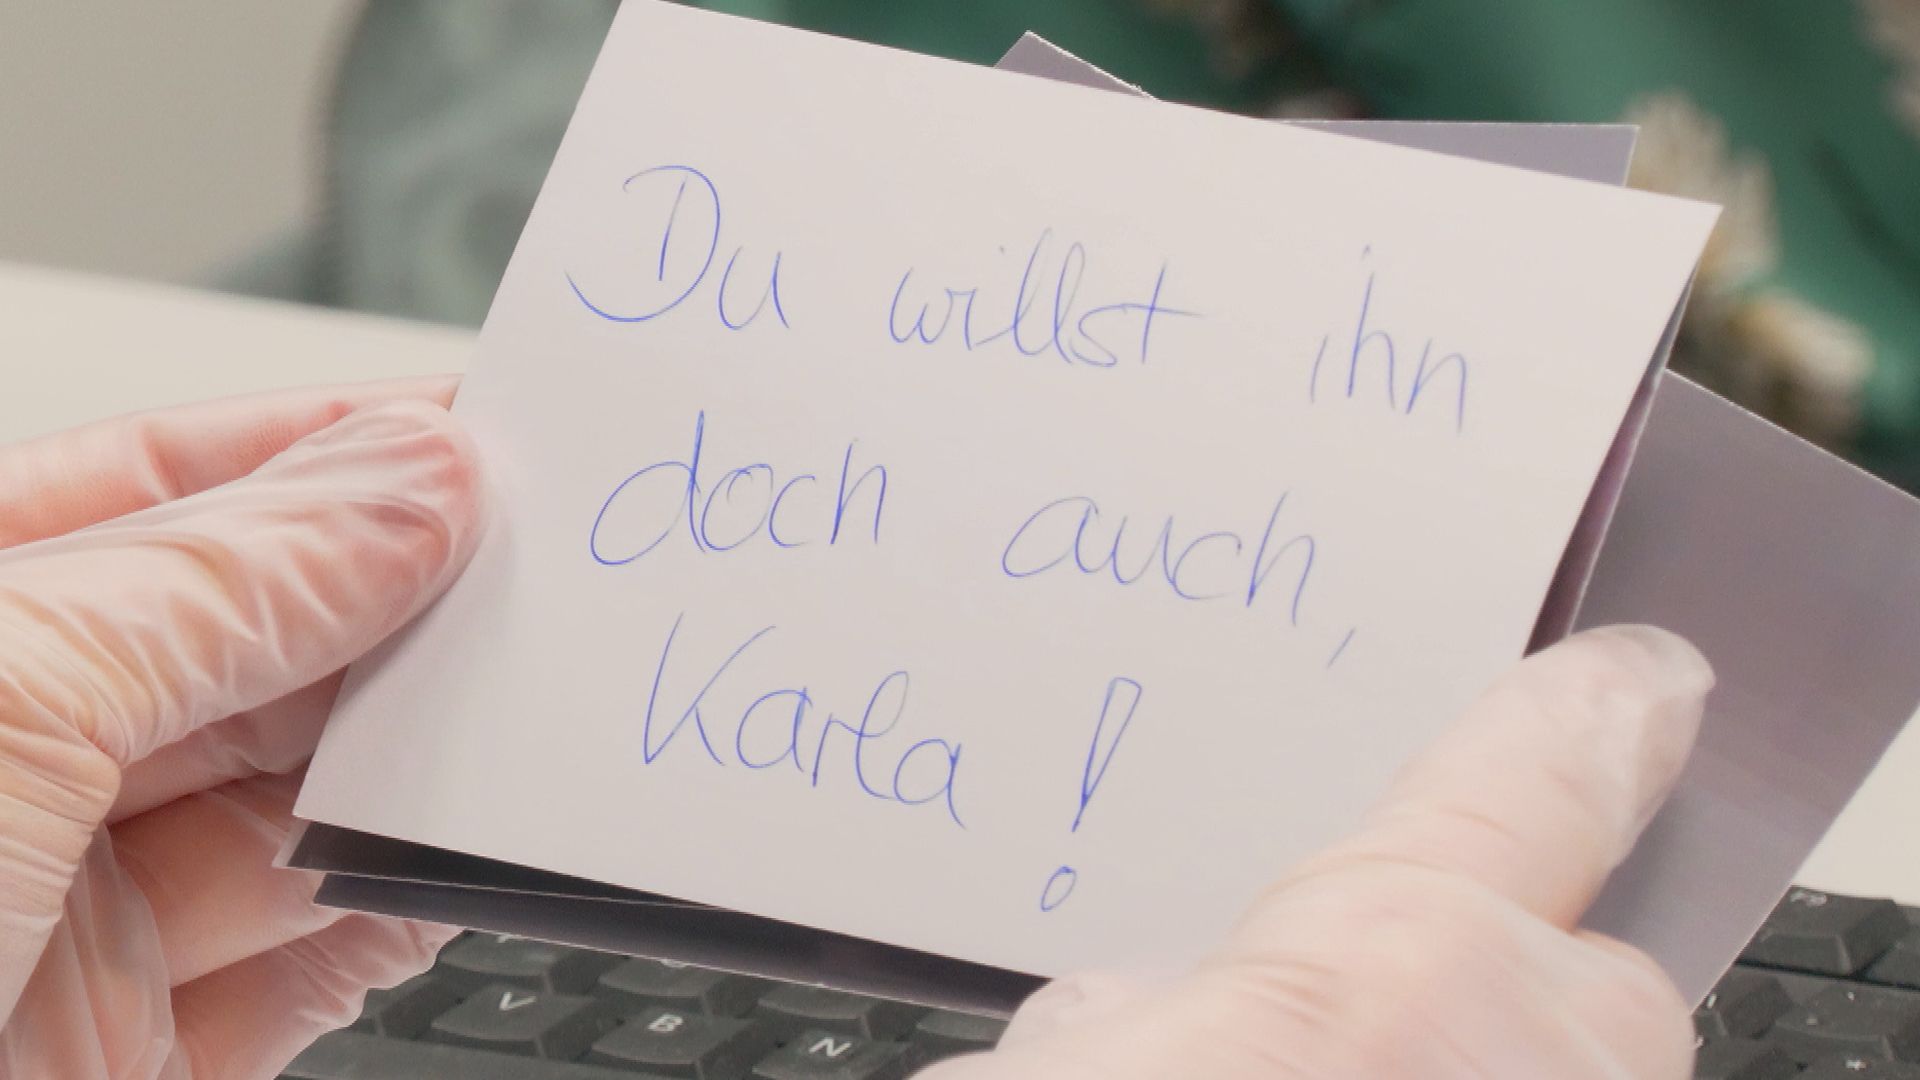 Du willst ihn
doch auch,
Karla!
V
B
N
F9